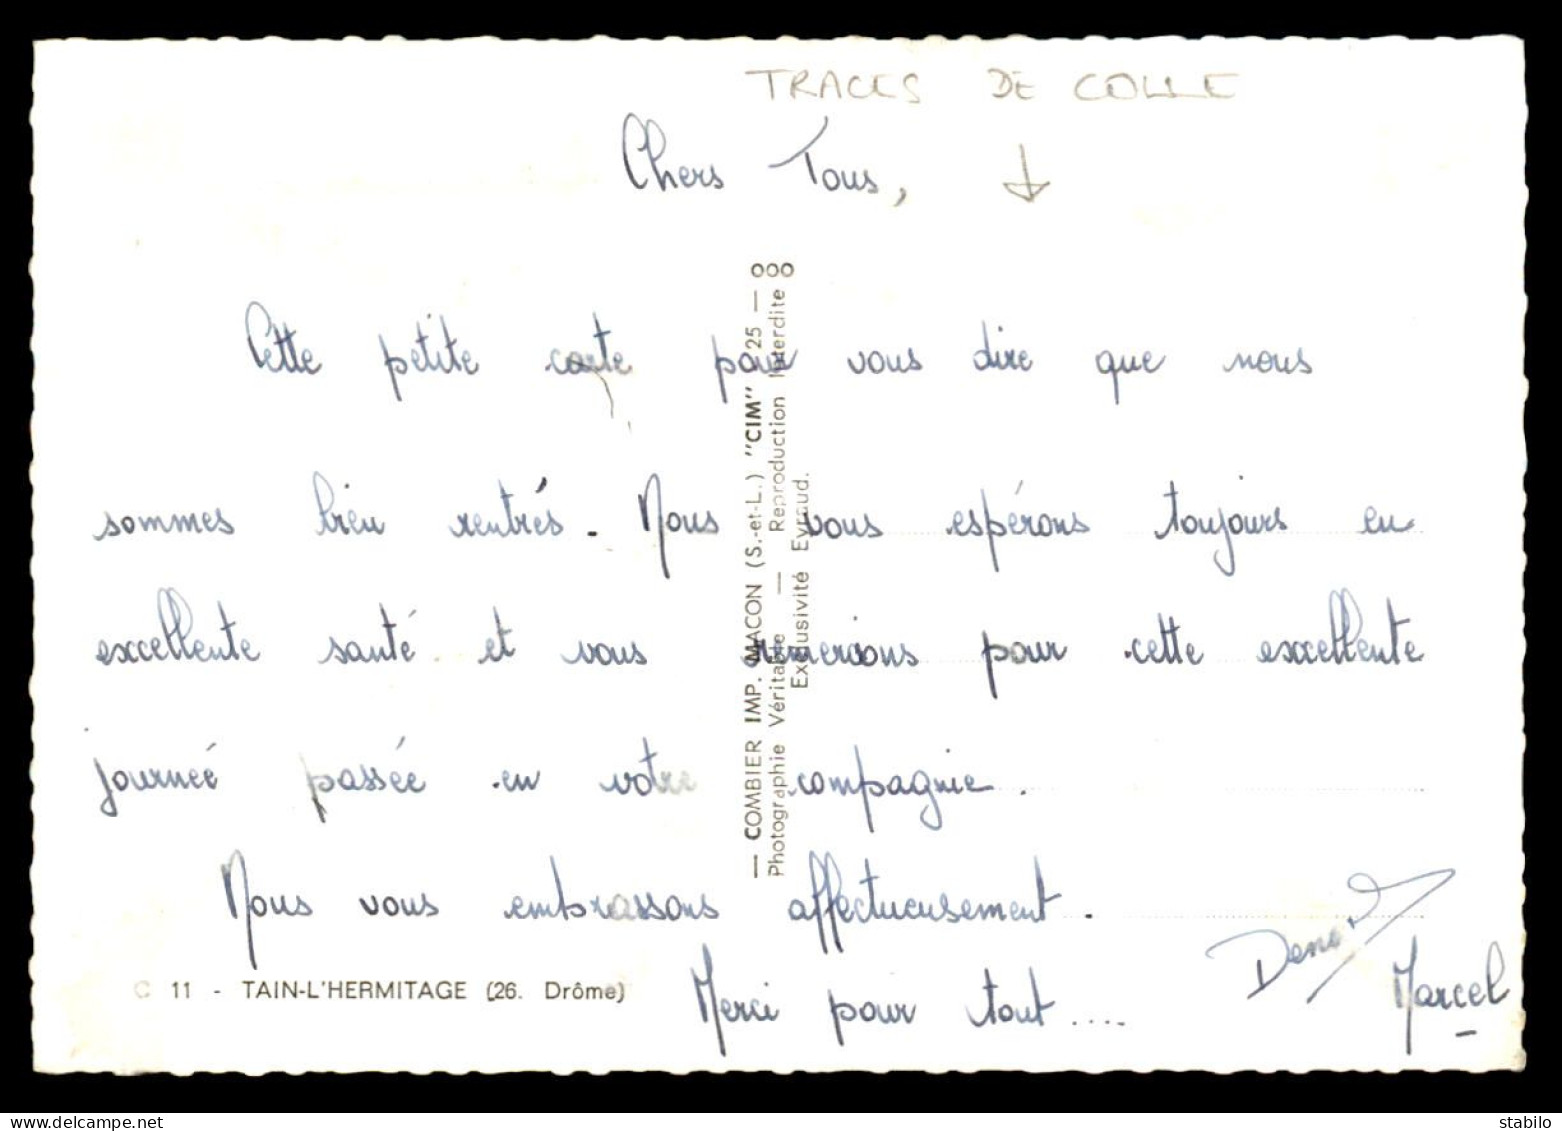 TRACES DE COLLE
Chers Tous,
Cette petite carte pour vous dire que nous
sommes bien rentrés. Nous vous espérons toujours en
excellente santé et vous remercions pour cette excellente
journée passée en votre compagnie.
Nous vous embrassons affectueusement.
Merci pour tout ....
Marcel
— COMBIER IMP. MACON (S.-et-L.) "CIM"
Photographie Véritable — Reproduction Interdite
Exclusivité Eyraud.
C 11 - TAIN-L'HERMITAGE (26. Drôme)
delcampe.net
stabilo